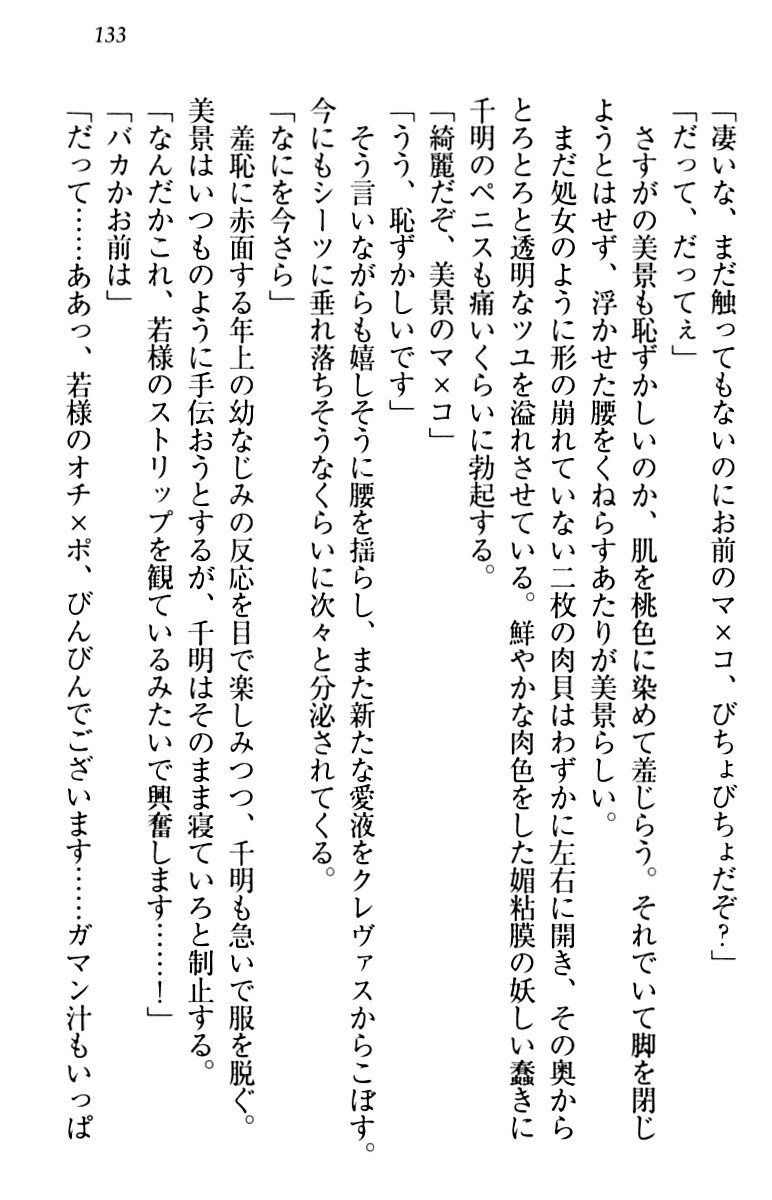 133
「凄いな、まだ触ってもないのにお前のマ×コ、びちょびちょだぞ？」
「だって、だってぇ」
　さすがの美景も恥ずかしいのか、肌を桃色に染めて羞じらう。それでいて脚を閉じ
ようとはせず、浮かせた腰をくねらすあたりが美景らしい。
　まだ処女のように形の崩れていない二枚の肉貝はわずかに左右に開き、その奥から
とろとろと透明なツユを溢れさせている。鮮やかな肉色をした媚粘膜の妖しい蠢きに
千明のペニスも痛いくらいに勃起する。
「綺麗だぞ、美景のマ×コ」
「うう、恥ずかしいです」
　そう言いながらも嬉しそうに腰を揺らし、また新たな愛液をクレヴァスからこぼす。
今にもシーツに垂れ落ちそうなくらいに次々と分泌されてくる。
「なにを今さら」
　羞恥に赤面する年上の幼なじみの反応を目で楽しみつつ、千明も急いで服を脱ぐ。
美景はいつものように手伝おうとするが、千明はそのまま寝ていろと制止する。
「なんだかこれ、若様のストリップを観ているみたいで興奮します……！」
「バカかお前は」
「だって……ああっ、若様のオチ×ポ、びんびんでございます……ガマン汁もいっぱ